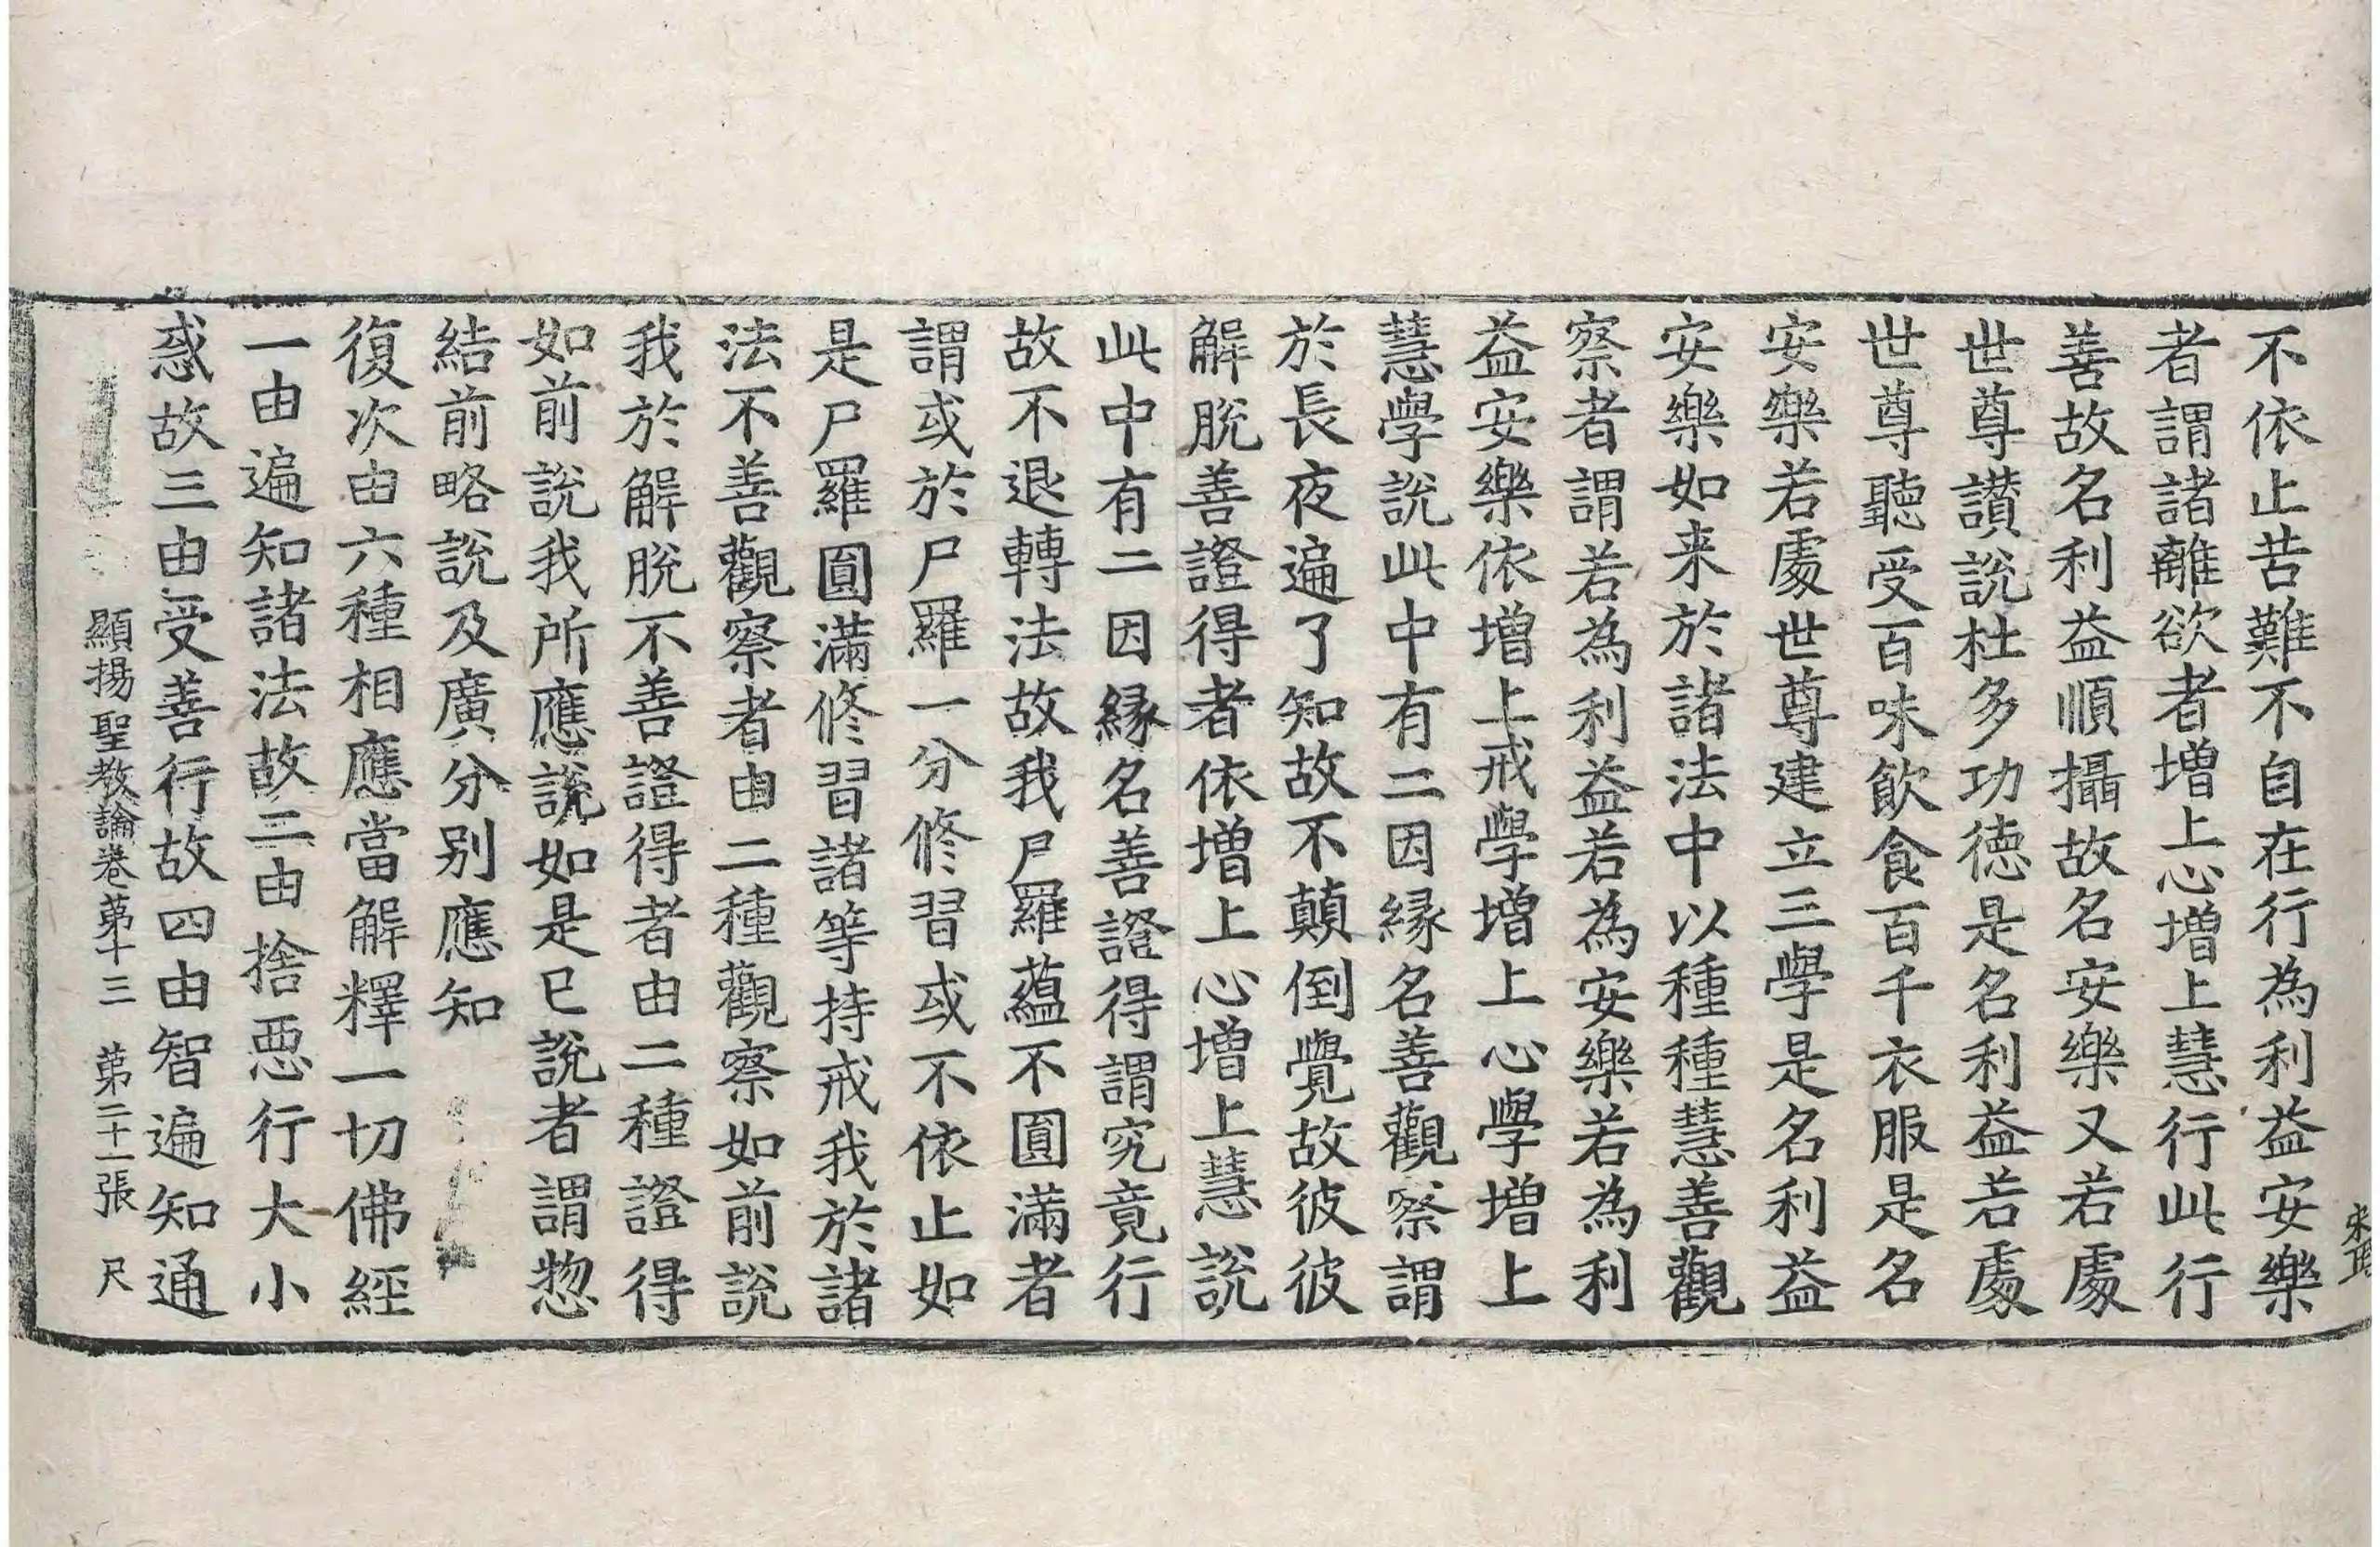 不依止苦難不自在行為利益安樂
者謂諸離欲者增上心增上慧行此行
善故名利益順攝故名安樂又若處
世尊讃說杜多功德是名利益若處
世尊聽受百味飲食百千衣服是名
安樂若處世尊建立三學是名利益
安樂如来於諸法中以種種慧善觀
察者謂若為利益若為安樂若為利
益安樂依增上戒學增上心學增上
慧學說此中有二因緣名善觀察謂
於長夜遍了知故不顛倒覺故彼彼
解脫善證得者依增上心增上慧說
此中有二因緣名善證得謂究竟行
故不退轉法故我尸羅蘊不圓滿者
謂或於尸羅一分修習或不依止如
是尸羅圓滿修習諸等持戒我於諸
法不善觀察者由二種觀察如前說
我於解脫不善證得者由二種證得
如前說我所應說如是已說者謂惣
結前略說及廣分別應知
復次由六種相應當解釋一切佛經
一由遍知諸法故二由捨惡行大小
惑故三由受善行故四由智遍知通
顯揚聖教論卷苐十三 苐二十一張 尺